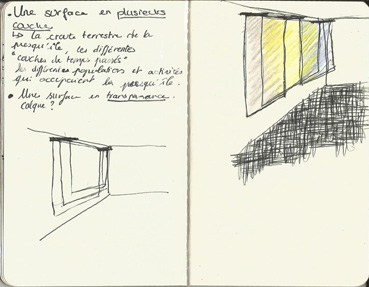 • Une surface en plusieurs
couche
↳ la croute terrestre de la
presqu'île, les différentes
"couches de temps passés"
les différentes populations et activités
qui occupaient la presqu'île.
• Une surface en transparence.
calque ?